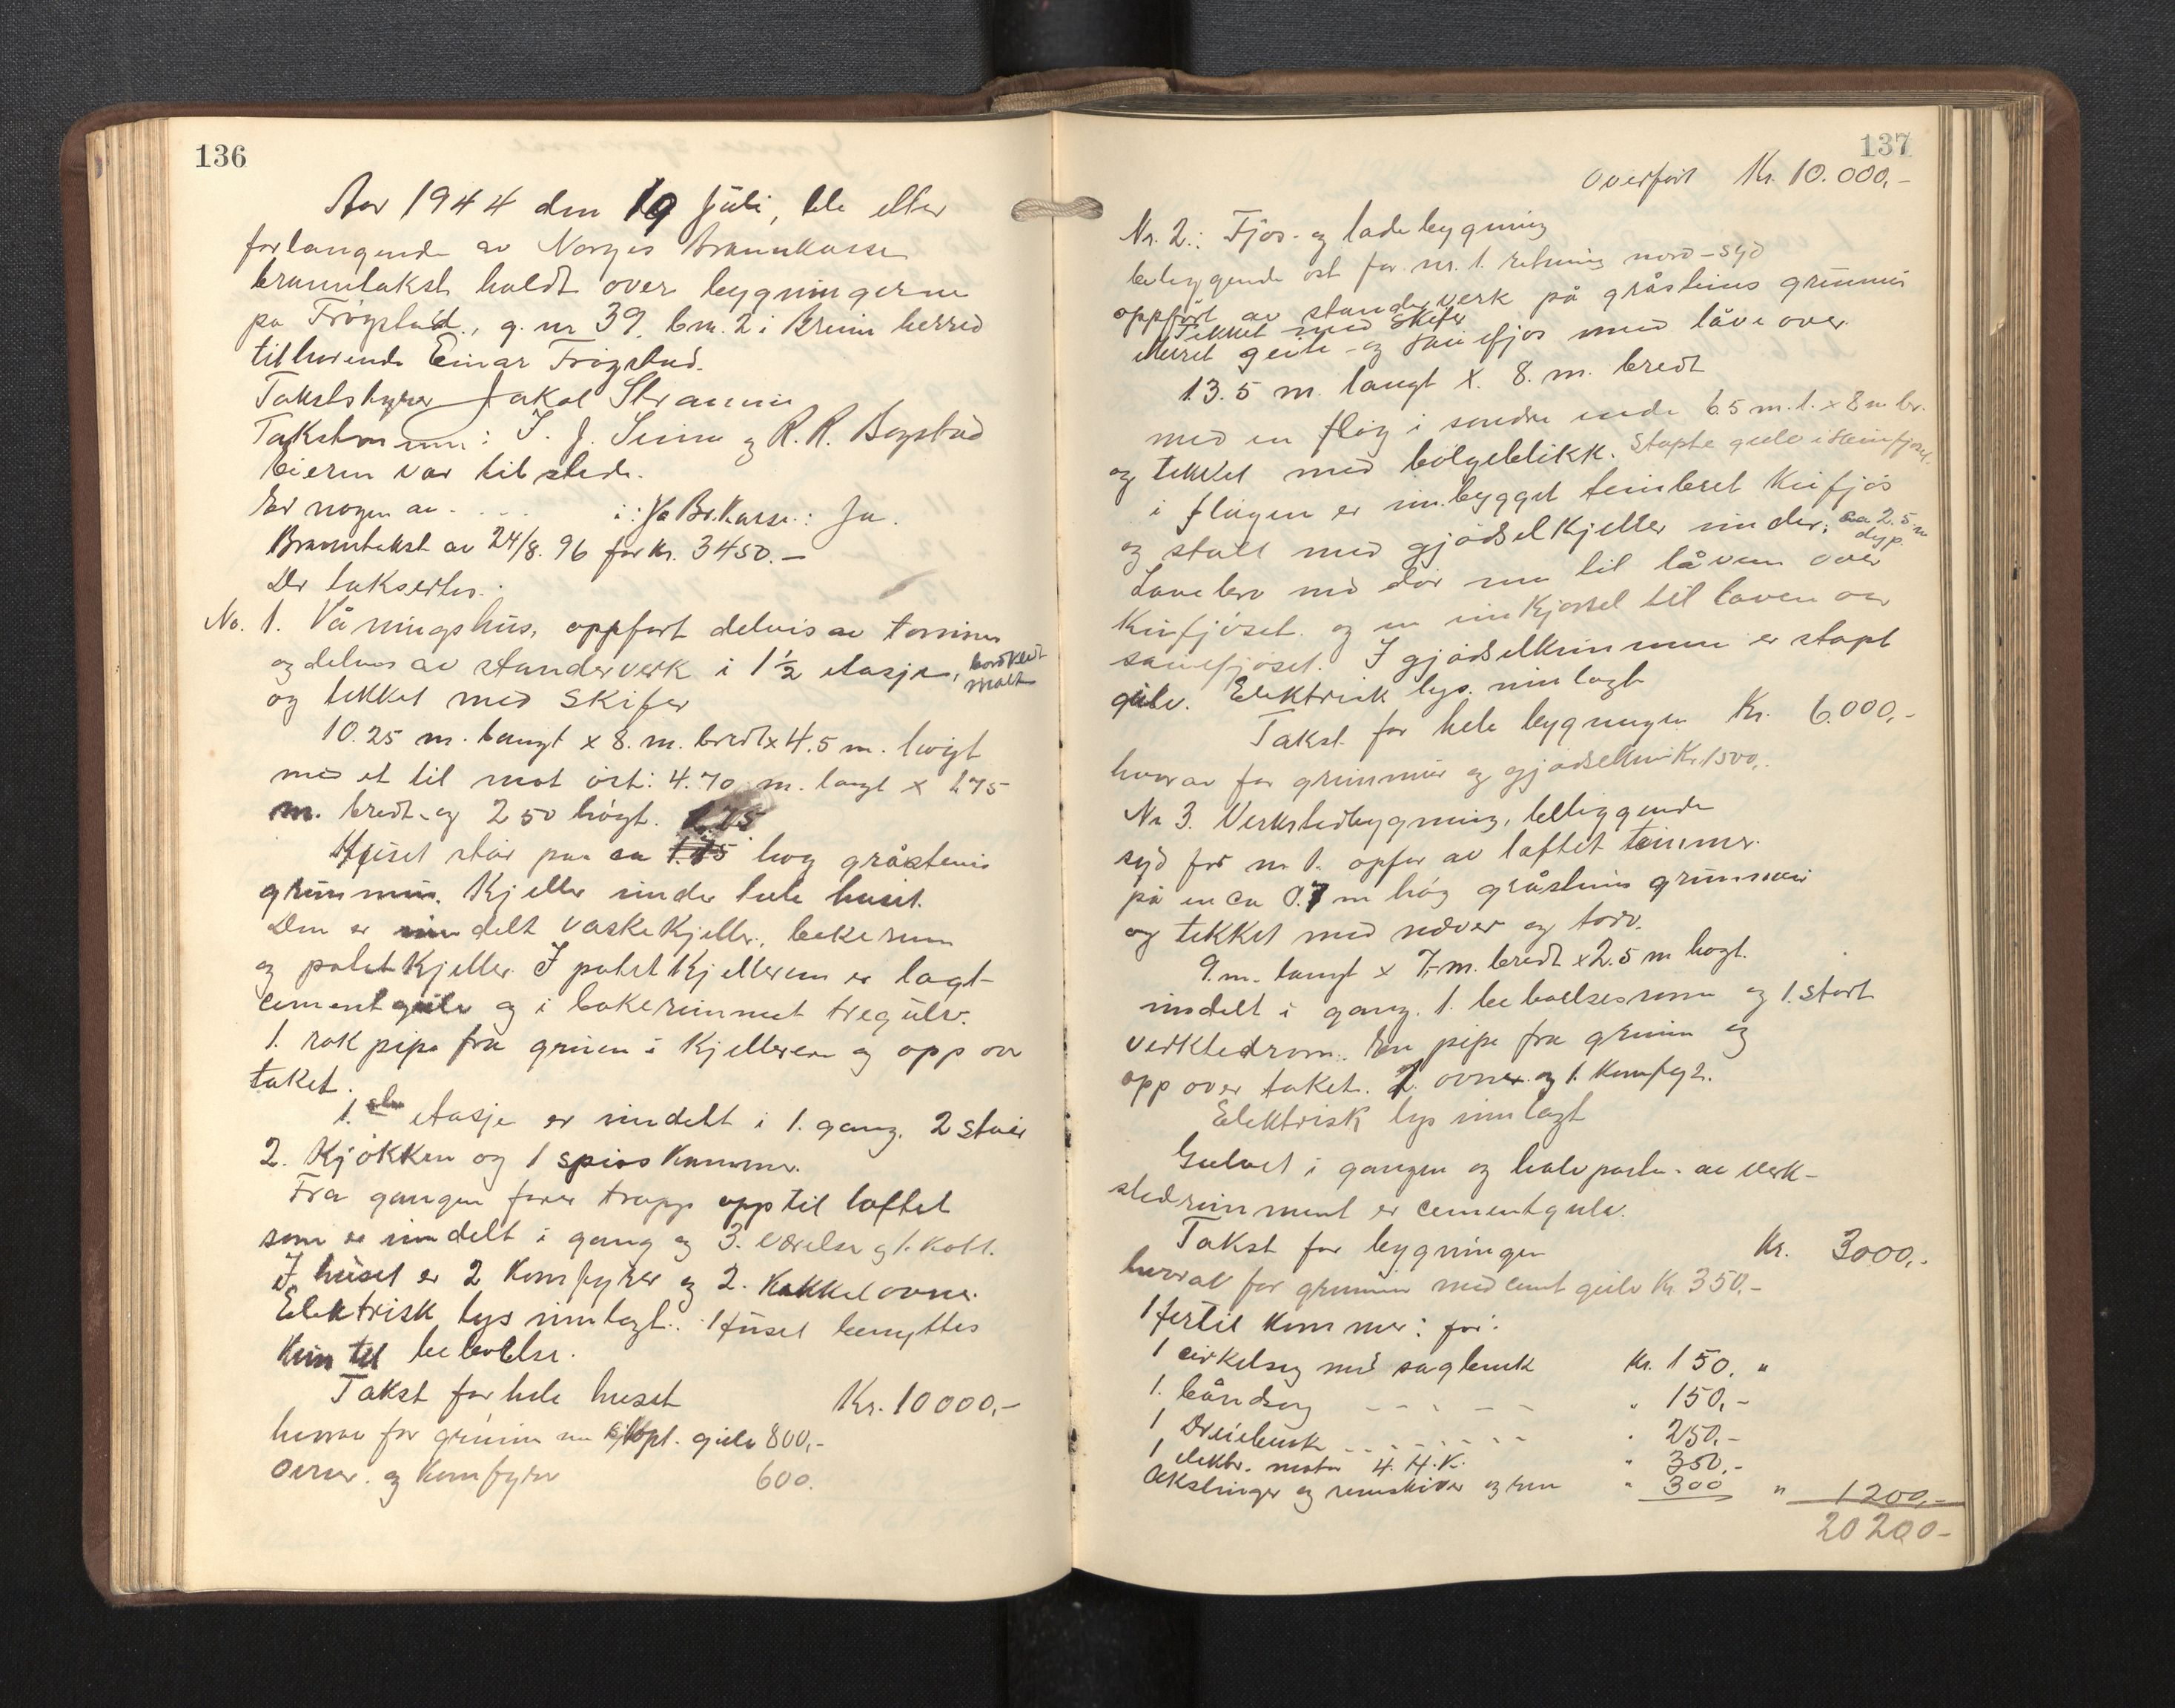 136
Aar 1944 den 19 Juli, ble etter
forlangende av Norges Brannkasse
branntakst holdt over bygningerne
på Frøystad, g. nr 39. b.nr. 2 i Breim herred
tilhørende Einar Frøystad.
Takststyrer Jakob Strømme
Takstmenn: J. J. Seime og R. R. Bogstad
Eieren var tilstede.
Er nogen av . . . . i: Ja Br.Kasse.: Ja.
Branntakst av 24/8. 96 for kr. 3450.—
Der taksertes:
No. 1. Våningshus, oppført delvis av tømmer
og delvis av standerverk i 1½ etasje, bordkledt
malt
og tekket med Skifer
10.25 m. langt x 8. m. bredt x 4.5 m. høigt
med et til mot øst: 4.70 m. langt x 275
m. bredt og 2 50 høgt.
Huset står paa ca 1.75 høg gråsteins
grunnmur. Kjeller under hele huset.
Den er inndelt vaskekjeller, bakerum
og potetkjeller. I potetkjelleren er lagt
cementgulv og i bakerummet tregulv.
1. røkpipe fra gruen i Kjelleren og opp over
taket.
1.ste etasje er inndelt i 1. gang. 2 stuer
2. Kjøkken og 1 spisskammer.
Fra gangen fører trapp opp til loftet
som er inndelt i gang og 3. værelse og 1. kott.
I huset er 2 Komfyrer og 2. Kakkelovner.
Elektrisk lys innlagt. Huset benyttes
Kun til beboelse.
Takst for hele huset Kr. 10000,-
hvorav for grunnm støpt. gulv 800,-
Ovner. og Komfyrer 600.
137
Overført Kr. 10.000,-
Nr. 2.: Fjøs- og ladebygning
beliggende øst for nr. 1. retning nord-syd
oppført av standerverk på gråsteins grunnmur
Tekket med Skifer
geite- og sauefjøs med låve over
13.5 m. langt x. 8. m. bredt
med en fløy i søndre ende 6.5 m. l. x 8 m br.
og tekket med bølgeblikk. Støpte gulv i sauefjøset.
i fløyen er innbygget tømberet Kufjøs
og stall med gjødselkjeller under. ca 2.5 m
dyp.
Lavebro med dør inn til låven over
Kufjøset. og en innkjørsel til låven over
sauefjøset. I gjødselkummen er støpt
gulv. Elektrisk lys. innlagt
Takst. for hele bygningen Kr. 6.000,-
hvorav for grunnmur og gjødselkum Kr. 1500,-
Nr 3. Verkstedbygning, beliggende
syd for nr 1. opfør av laftet tømmer.
på en ca 0.7 m høg gråsteins grunnmur
og tekket med never og torv.
9. m. langt x 7,-m. bredt x 2.5 m høgt.
inndelt i gang. 1. beboelsesrum og 1. stort
verkstedrom. En pipe fra grunn og
opp over taket. 2. ovner og 1. Komfyr.
Elektrisk lys innlagt
Gulvet i gangen og halvparten av verk-
stedrummet er cementgulv.
Takst for bygningen Kr. 3000,-
hvorav for grunnm med cemt gulv Kr. 350.-
Hertil Kommer: for:
1 cirkelsag med sagbenk Kr. 150. "
1. båndsag - - - - - " 150,-
1 Dreiebenk - - - - - - " 250,-
1 elektr. motor 4. H.K. " 350,-
Akslinger og remskiver og rem " 300 " 1200,-
20 200-